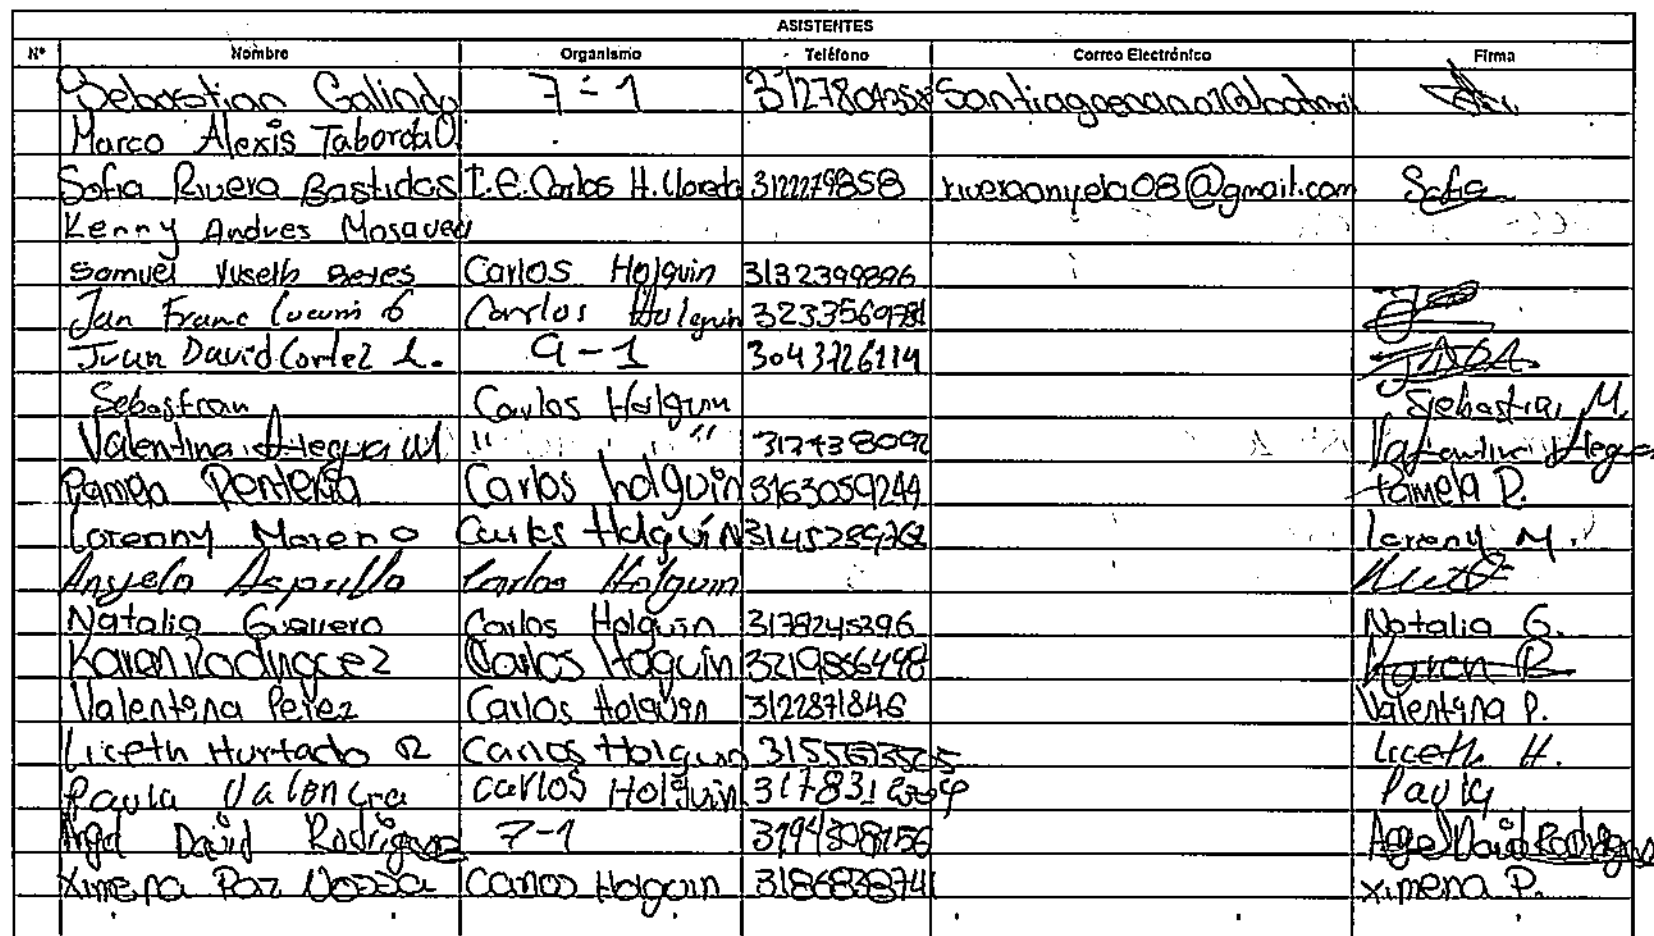 ASISTENTES
Nº Nombre Organismo Teléfono Correo Electrónico Firma
Sebastian Galindo 7-1
Marco Alexis Taborda O.
Sofia Rivera Bastidas I.E. Carlos H. Lloreda 3122279858 @gmail.com Sofia
Kenny Andres
Samuel Carlos Holguin 3132399896
Jan Franc Lucumi G Carlos Holguin
Juan David Cortez L. 9-1 3043726114
Sebastian Carlos Holguin Sebastian M.
Valentina M " " Valentina
Pamela Renteria Carlos holguin 3163059244 Pamela R.
Lorenny Moreno Carlos Holguín Loreny M.
Angelo Asprilla Carlos Holguin
Natalia Guerrero Carlos Holguin 3178245396 Natalia G.
Karen Rodriguez Carlos Holguin 3219856498 Karen R
Valentina Perez Carlos Holguin 3122871846 Valentina P.
Liceth Hurtado R Carlos Holguin Liceth H.
Paula Valencia carlos Holguin Paula
Angel David Rodriguez 7-1 Angel David Rodriguez
Ximena Paz Carlos Holguin Ximena P.